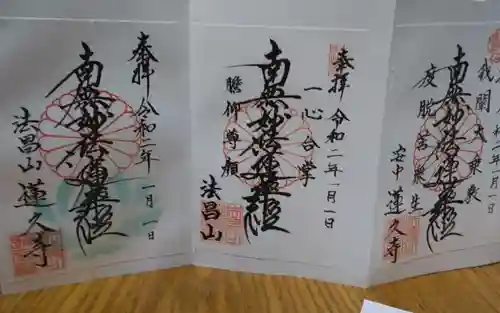 奉拝
令和二年一月一日
南無妙法蓮華経
法昌山
蓮久寺
奉拝
令和二年一月一日
一心合掌
南無妙法蓮華経
瞻仰尊顔
法昌山
我聞大乗
南無妙法蓮華経
度脱苦衆生
安中
蓮久寺